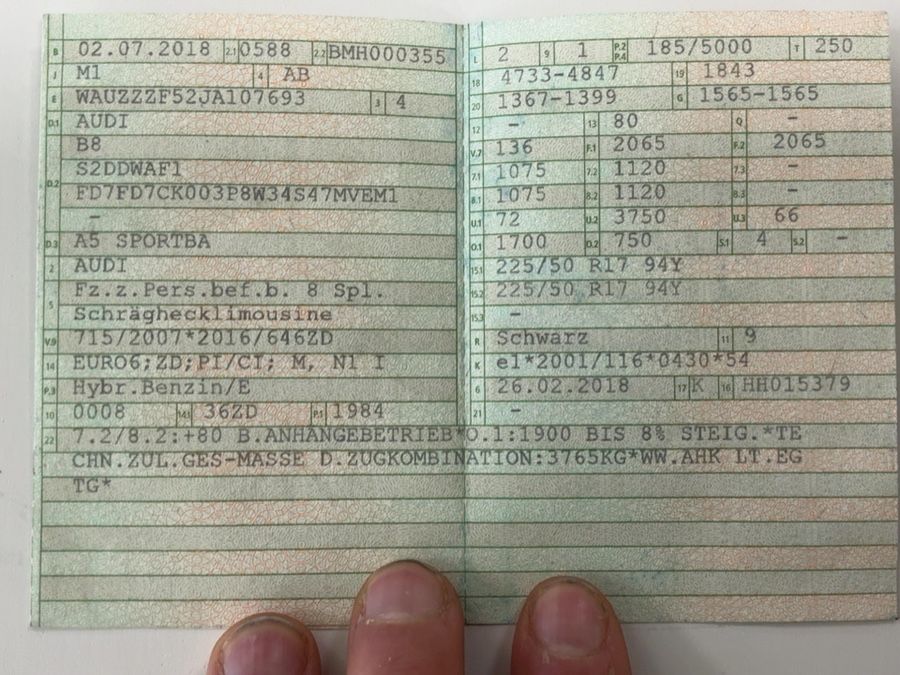 B 02.07.2018 2.1 0588 2.2 BMH000355
J M1 4 AB
E WAUZZZF52JA107693 3 4
D.1 AUDI
B8
D.2 S2DDWAF1
FD7FD7CK003P8W34S47MVEM1
–
D.3 A5 SPORTBA
2 AUDI
5 Fz.z.Pers.bef.b. 8 Spl.
Schräghecklimousine
V.9 715/2007*2016/646ZD
14 EURO6;ZD;PI/CI; M, N1 I
P.3 Hybr.Benzin/E
10 0008 14.1 36ZD P.1 1984
L 2 9 1 P.2 P.4 185/5000 T 250
18 4733-4847 19 1843
20 1367-1399 G 1565-1565
12 – 13 80 Q –
V.7 136 F.1 2065 F.2 2065
7.1 1075 7.2 1120 7.3 –
8.1 1075 8.2 1120 8.3 –
U.1 72 U.2 3750 U.3 66
O.1 1700 O.2 750 S.1 4 S.2 –
15.1 225/50 R17 94Y
15.2 225/50 R17 94Y
15.3 –
R Schwarz 11 9
K e1*2001/116*0430*54
6 26.02.2018 17 K 16 HH015379
21 –
22 7.2/8.2:+80 B.ANHÄNGEBETRIEB*O.1:1900 BIS 8% STEIG.*TE
CHN.ZUL.GES-MASSE D.ZUGKOMBINATION:3765KG*WW.AHK LT.EG
TG*